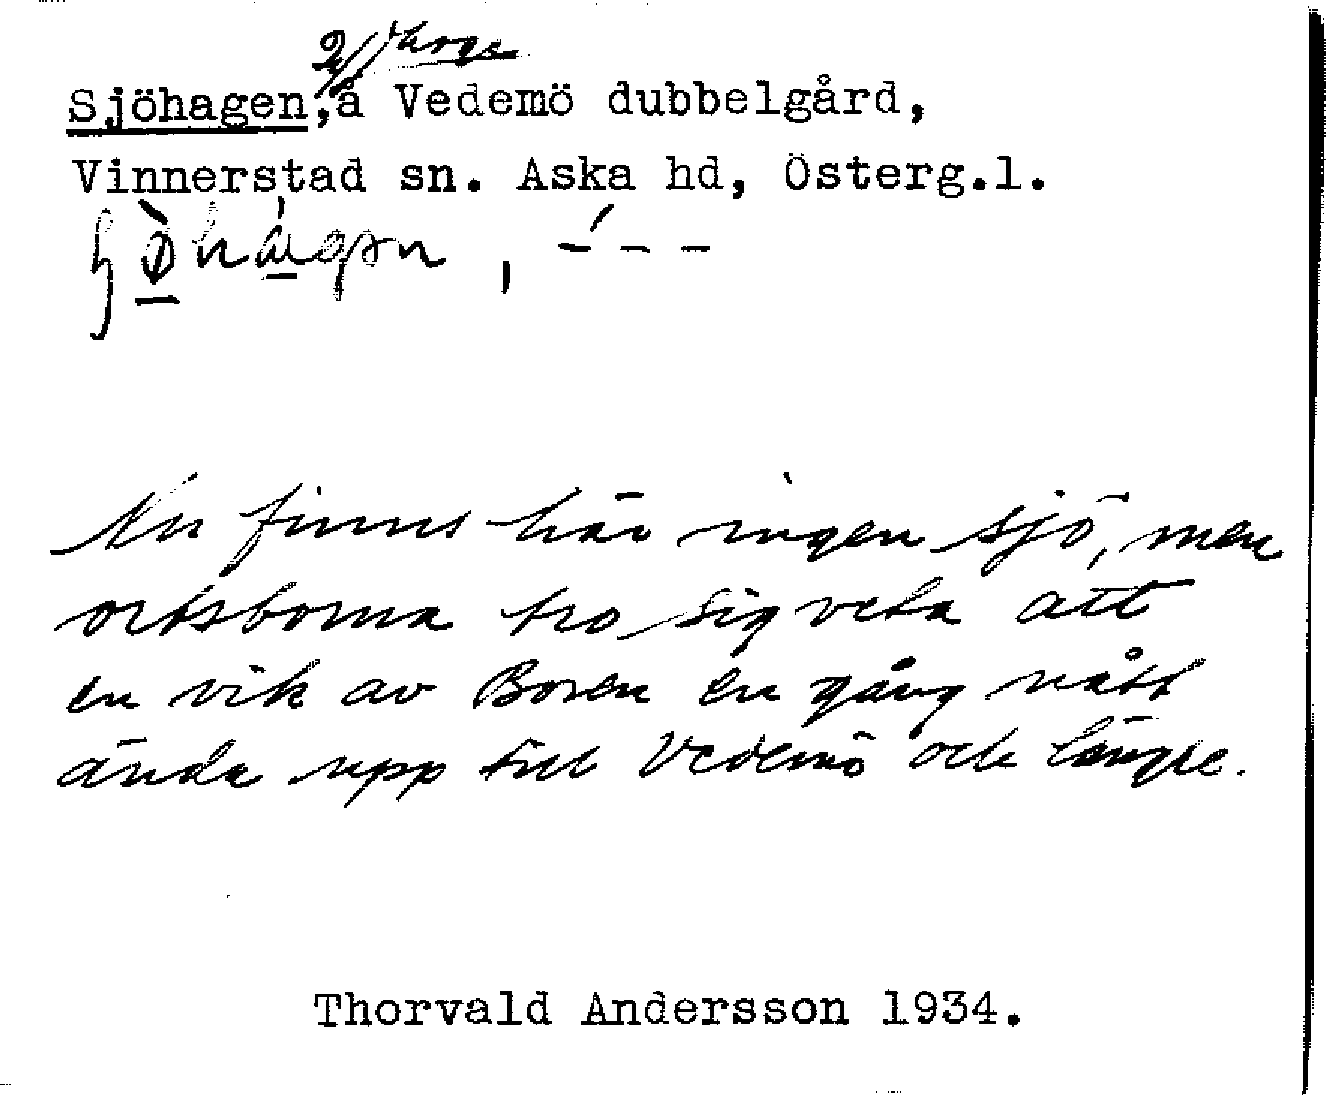 Sjöhagen, å Vedemö dubbelgård,
Vinnerstad sn. Aska hd, Österg.l.
Nu finns här ingen sjö, men
ortsborna tro sig veta att
en vik av Boren en gång nått
ända upp till Vedemö och längre.
Thorvald Andersson 1934.